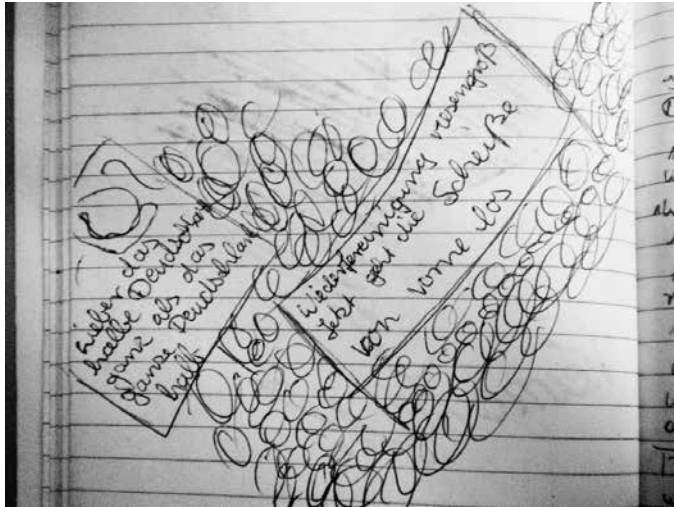 Lieber das
halbe Deutschland
ganz als das
ganze Deutschland
halb
Wiedervereinigung riesengroß
Jetzt geht die Scheiße
von vorne los